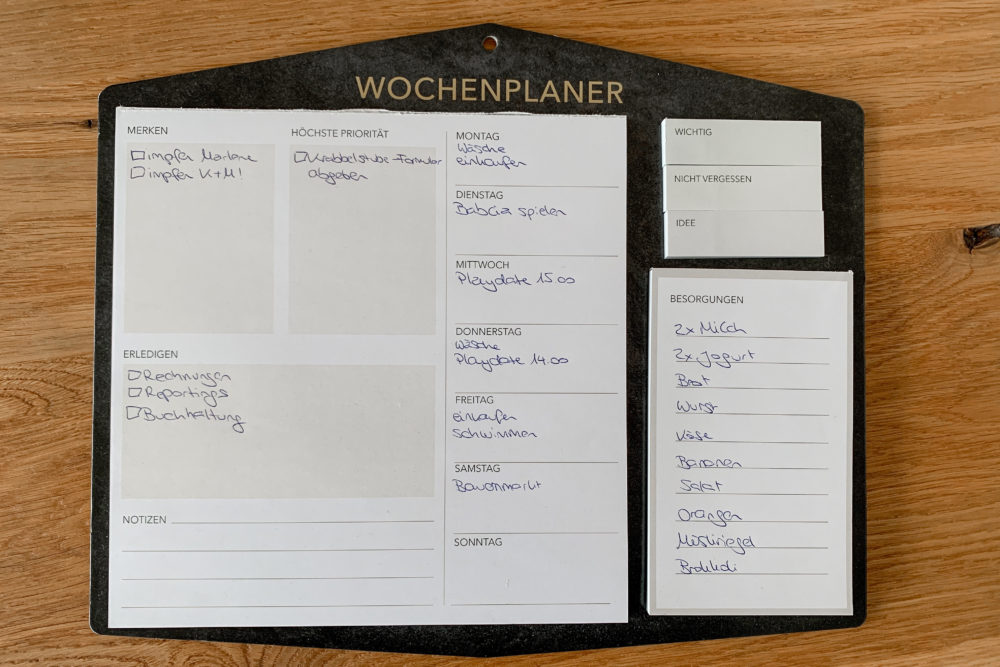 WOCHENPLANER
MERKEN
impfen Marlene
impfen K+M!
HÖCHSTE PRIORITÄT
Krabbelstube-Formular
abgeben
ERLEDIGEN
Rechnungen
Reportings
Buchhaltung
NOTIZEN
MONTAG
Wäsche
einkaufen
DIENSTAG
Babcia spielen
MITTWOCH
Playdate 15.00
DONNERSTAG
Wäsche
Playdate 14.00
FREITAG
einkaufen
schwimmen
SAMSTAG
Bauernmarkt
SONNTAG
WICHTIG
NICHT VERGESSEN
IDEE
BESORGUNGEN
2x Milch
2x Jogurt
Brot
Wurst
Käse
Bananen
Salat
Orangen
Müsliriegel
Brokkoli